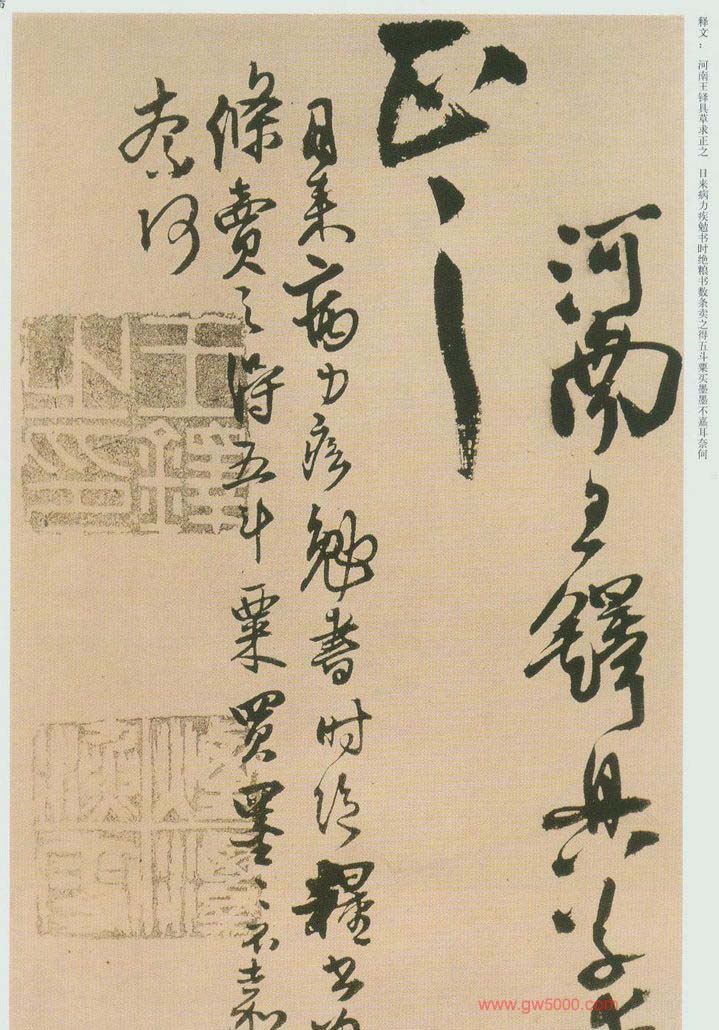 释文： 河南王铎具草求正之 日来病力疾勉书时绝粮书数条卖之得五斗粟买墨墨不嘉耳奈何
河南王鐸具草
正之
日来病力疾勉書时绝糧书
條賣之得五斗粟買墨墨不嘉
奈何
王鐸之印
www.gw5000.com